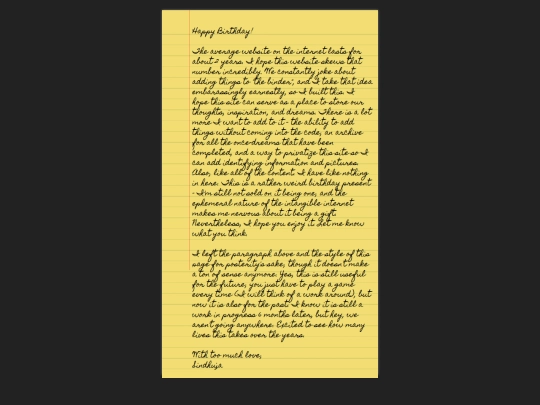 Happy Birthday!
The average website on the internet lasts for
about 2 years. I hope this website skews that
number incredibly. We constantly joke about
adding things to 'the binder', and I take that idea
embarassingly earnestly, so I built this. I
hope this site can serve as a place to store our
thoughts, inspiration, and dreams. There is a lot
more I want to add to it - the ability to add
things without coming into the code, an archive
for all the once-dreams that have been
completed, and a way to privatize this site so I
can add identifying information and pictures.
Also, like all of the content. I have like nothing
in here. This is a rather weird birthday present
- I'm still not sold on it being one, and the
ephemeral nature of the intangible internet
makes me nervous about it being a gift.
Nevertheless, I hope you enjoy it. Let me know
what you think.
I left the paragraph above and the style of this
page for posterity's sake, though it doesn't make
a ton of sense anymore. Yes, this is still useful
for the future, you just have to play a game
every time (I will think of a work around), but
now it is also for the past. I know it is still a
work in progress 6 months later, but hey, we
aren't going anywhere. Excited to see how many
lives this takes over the years.
With too much love,
Sindhuja